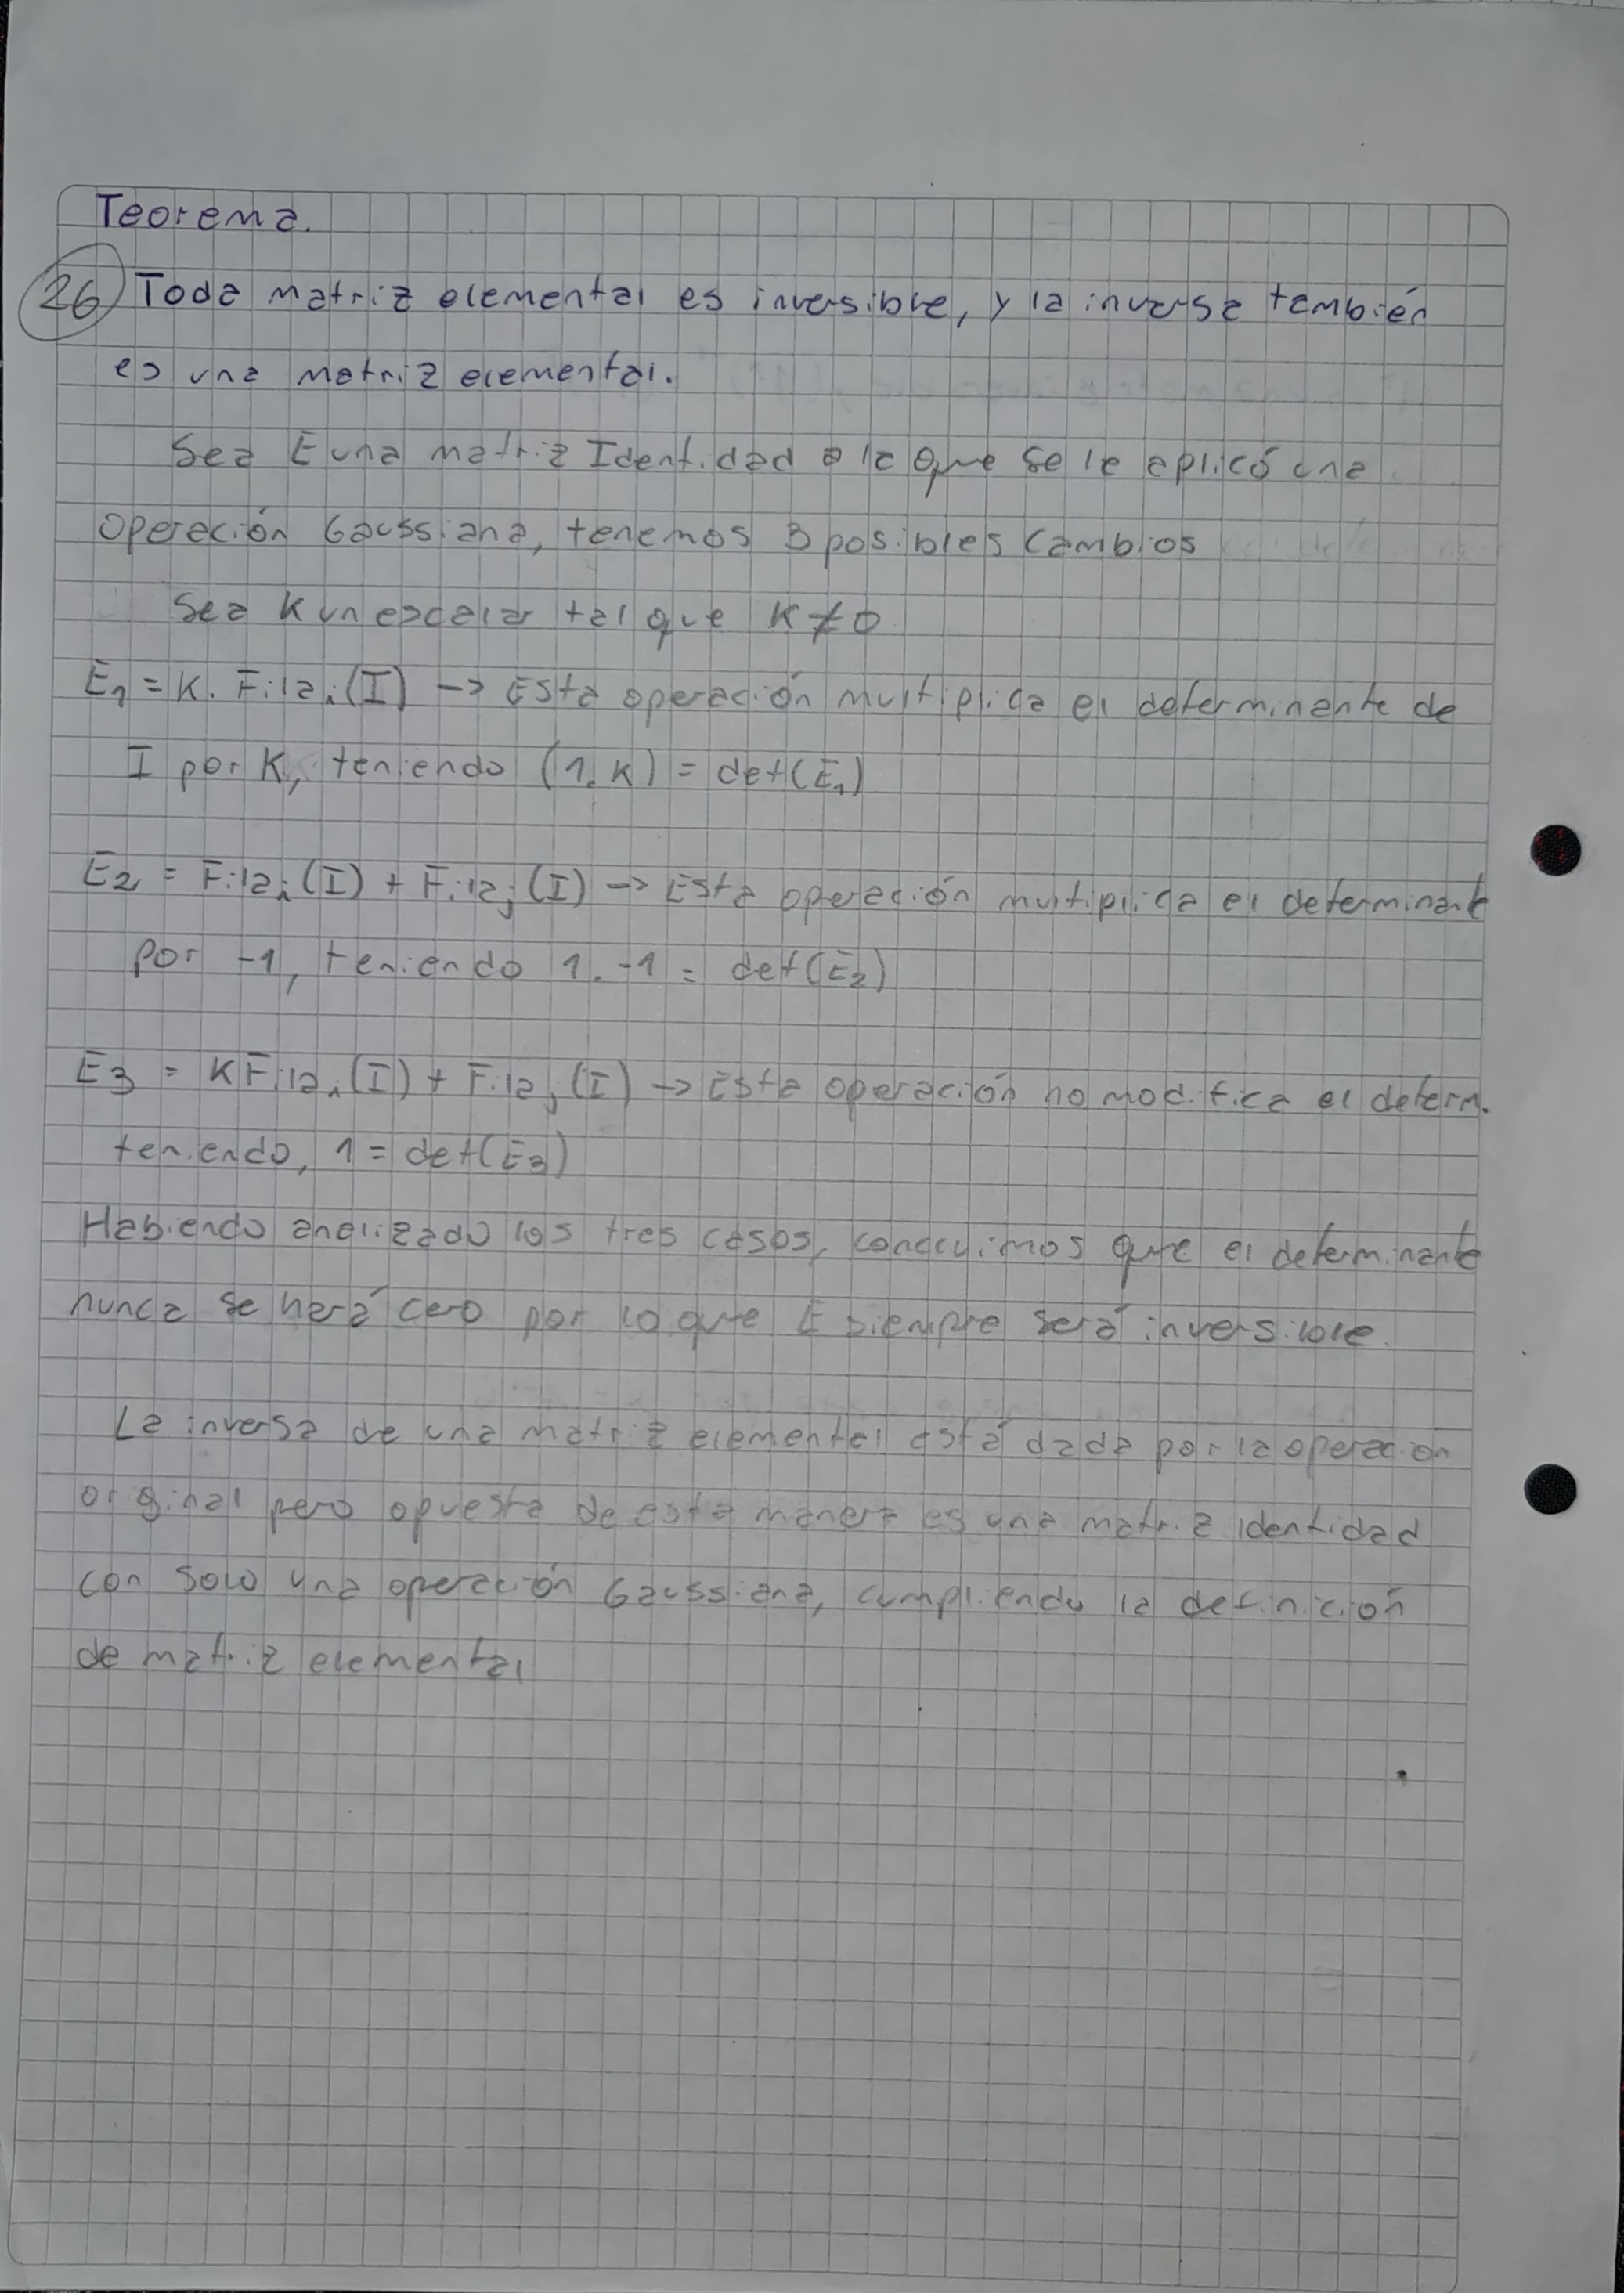 Teorema.
26 Toda matriz elemental es inversible, y la inversa también
es una matriz elemental.
Sea E una matriz Identidad a la que se le aplicó una
operación Gaussiana, tenemos 3 posibles cambios
Sea K un escalar tal que K≠0
E₁ = K. Filaᵢ(I) -> Esta operación multiplica el determinante de
I por K, teniendo (1.K) = det(E₁)
E₂ = Filaᵢ(I) + Filaⱼ(I) -> Esta operación multiplica el determinante
por -1, teniendo 1. -1 = det(E₂)
E₃ = KFilaᵢ(I) + Filaⱼ(I) -> Esta operación no modifica el determ.
teniendo, 1 = det(E₃)
Habiendo analizado los tres casos, concluimos que el determinante
nunca se hará cero por lo que E siempre será inversible.
La inversa de una matriz elemental está dada por la operación
original pero opuesta de esta manera es una matriz identidad
con solo una operación Gaussiana, cumpliendo la definición
de matriz elemental